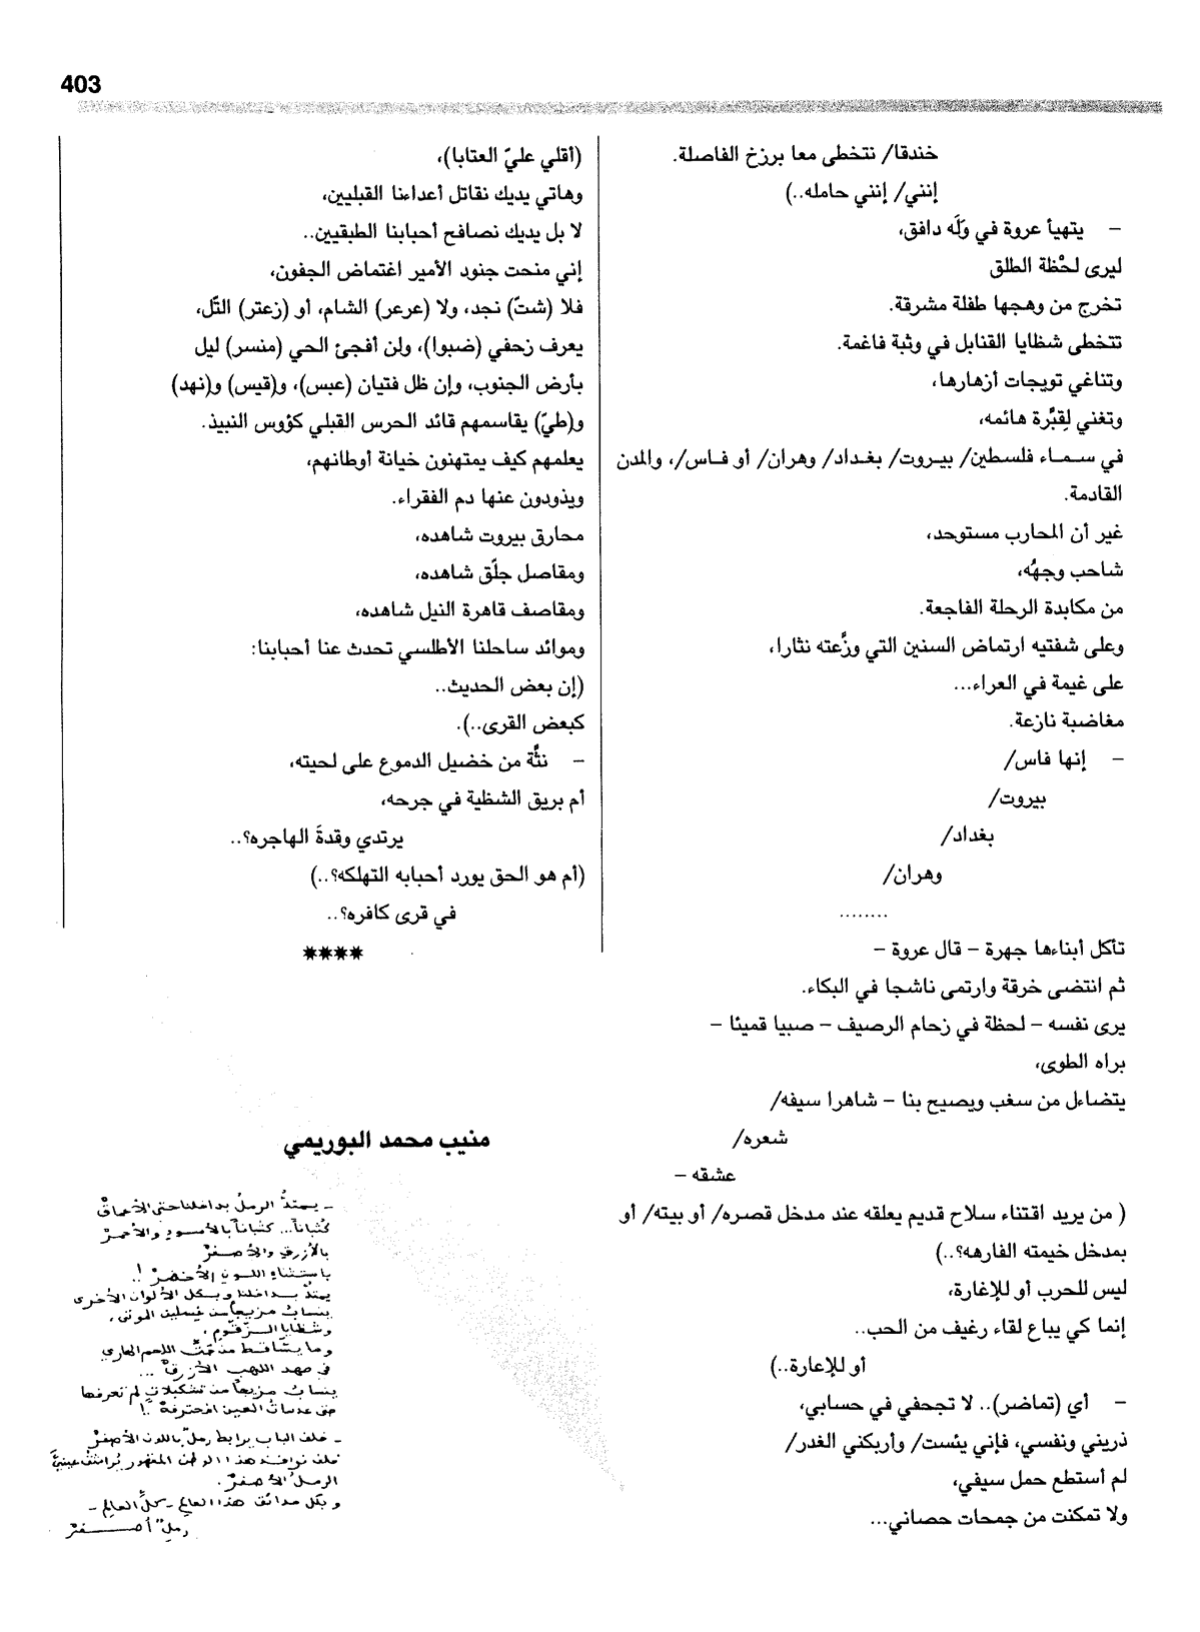 403
خندقا/ نتخطى معا برزخ الفاصلة.
إنني/ إنني حامله..)
– يتهيأ عروة في وَلَه دافق،
ليرى لحْظة الطلق
تخرج من وهجها طفلة مشرقة.
تتخطى شظايا القنابل في وثبة فاغمة.
وتناغي تويجات أزهارها،
وتغني لِقبَّرة هائمه،
في سماء فلسطين/ بيروت/ بغداد/ وهران/ أو فاس/، والمدن
القادمة.
غير أن المحارب مستوحد،
شاحب وجهُه،
من مكابدة الرحلة الفاجعة.
وعلى شفتيه ارتماض السنين التي وزَّعته نثارا،
على غيمة في العراء...
مغاضبة نازعة.
– إنها فاس/
بيروت/
بغداد/
وهران/
........
تأكل أبناءها جهرة – قال عروة –
ثم انتضى خرقة وارتمى ناشجا في البكاء.
يرى نفسه – لحظة في زحام الرصيف – صبيا قميئا –
براه الطوى،
يتضاءل من سغب ويصيح بنا – شاهرا سيفه/
شعره/
عشقه –
( من يريد اقتناء سلاح قديم يعلقه عند مدخل قصره/ أو بيته/ أو
بمدخل خيمته الفارهه؟..)
ليس للحرب أو للإغارة،
إنما كي يباع لقاء رغيف من الحب..
أو للإعارة..)
– أي (تماضر).. لا تجحفي في حسابي،
ذريني ونفسي، فإني يئست/ وأربكني الغدر/
لم أستطع حمل سيفي،
ولا تمكنت من جمحات حصاني...
(أقلي عليّ العتابا)،
وهاتي يديك نقاتل أعداءنا القبليين،
لا بل يديك نصافح أحبابنا الطبقيين..
إني منحت جنود الأمير اغتماض الجفون،
فلا (شثّ) نجد، ولا (عرعر) الشام، أو (زعتر) التّل،
يعرف زحفي (ضبوا)، ولن أفجئ الحي (منسر) ليل
بأرض الجنوب، وإن ظل فتيان (عبس)، و(قيس) و(نهد)
و(طيّ) يقاسمهم قائد الحرس القبلي كؤوس النبيذ.
يعلمهم كيف يمتهنون خيانة أوطانهم،
ويذودون عنها دم الفقراء.
محارق بيروت شاهده،
ومقاصل جلّق شاهده،
ومقاصف قاهرة النيل شاهده،
وموائد ساحلنا الأطلسي تحدث عنا أحبابنا:
(إن بعض الحديث..
كبعض القرى..).
– نثَّة من خضيل الدموع على لحيته،
أم بريق الشظية في جرحه،
يرتدي وقدةَ الهاجره؟..
(أم هو الحق يورد أحبابه التهلكه؟..)
في قرى كافره؟..
****
منيب محمد البوريمي
- يمتدُّ الرملُ بداخلنا حتى الأعماقْ
كُثباناً... كثباناً بالأسودِ والأحمرْ
بالأزرقِ والأصفرْ
باستثناءِ اللونِ الأخضرْ !..
يمتدُّ بداخلنا وبكل الألوان الأخرى
ينسابُ مزيجاً من غسلين الموتى،
وشظايا الزقّوم،
وما يسّاقط من تحتِ اللحم العاري
في صهد اللهب الأزرقْ ...
ينسابُ مزيجاً من تشكيلاتٍ لم تعرفها
حتى عدساتُ العين المحترفهْ !.
- خلف الباب يرابط رملٌ باللون الأصفرْ
خلف نوافذ هذا الوطن المقهور يُراشق عينيَّ
الرملُ الأصفرْ .
وبكل حدائق هذا العالم - كلِّ العالمِ -
رملٌ أصفرْ